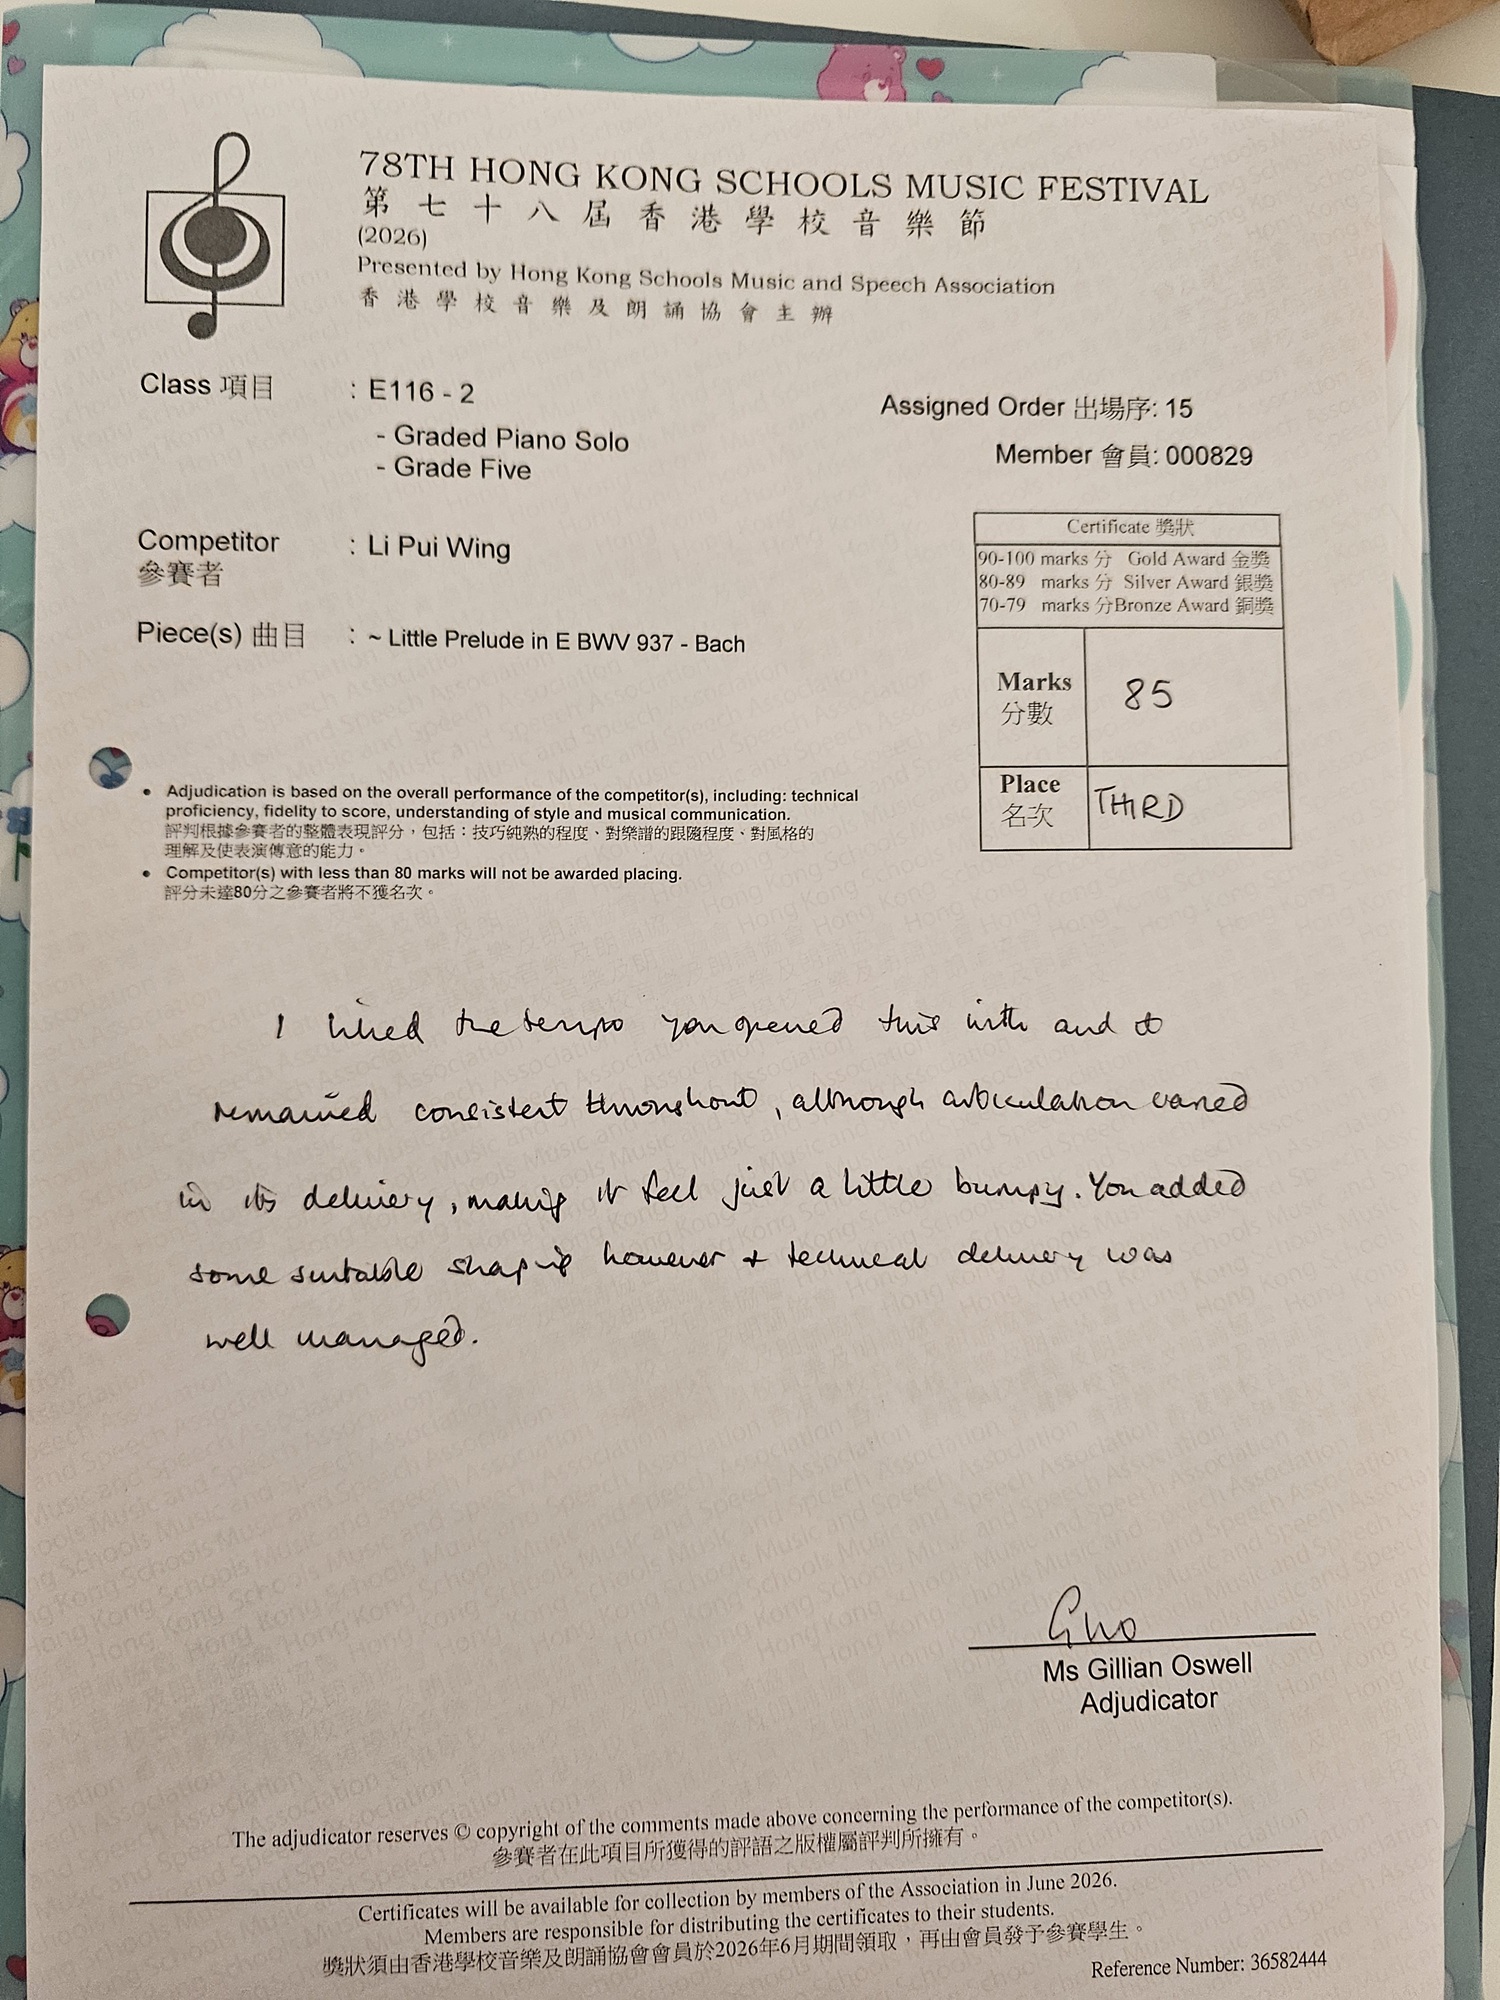 78TH HONG KONG SCHOOLS MUSIC FESTIVAL
第七十八屆香港學校音樂節
(2026)
Presented by Hong Kong Schools Music and Speech Association
香港學校音樂及朗誦協會主辦
Class 項目 : E116 - 2
- Graded Piano Solo
- Grade Five
Assigned Order 出場序: 15
Member 會員: 000829
Competitor : Li Pui Wing
參賽者
Piece(s) 曲目 : ~ Little Prelude in E BWV 937 - Bach
Certificate 獎狀
90-100 marks 分 Gold Award 金獎
80-89 marks 分 Silver Award 銀獎
70-79 marks 分 Bronze Award 銅獎
Marks 85
分數
Place THIRD
名次
• Adjudication is based on the overall performance of the competitor(s), including: technical
proficiency, fidelity to score, understanding of style and musical communication.
評判根據參賽者的整體表現評分，包括：技巧純熟的程度、對樂譜的跟隨程度、對風格的
理解及使表演傳意的能力。
• Competitor(s) with less than 80 marks will not be awarded placing.
評分未達80分之參賽者將不獲名次。
I liked the tempo you opened this with and it
remained consistent throughout, although articulation varied
in its delivery, making it feel just a little bumpy. You added
some suitable shaping however + technical delivery was
well managed.
Ms Gillian Oswell
Adjudicator
The adjudicator reserves © copyright of the comments made above concerning the performance of the competitor(s).
參賽者在此項目所獲得的評語之版權屬評判所擁有。
Certificates will be available for collection by members of the Association in June 2026.
Members are responsible for distributing the certificates to their students.
獎狀須由香港學校音樂及朗誦協會會員於2026年6月期間領取，再由會員發予參賽學生。
Reference Number: 36582444